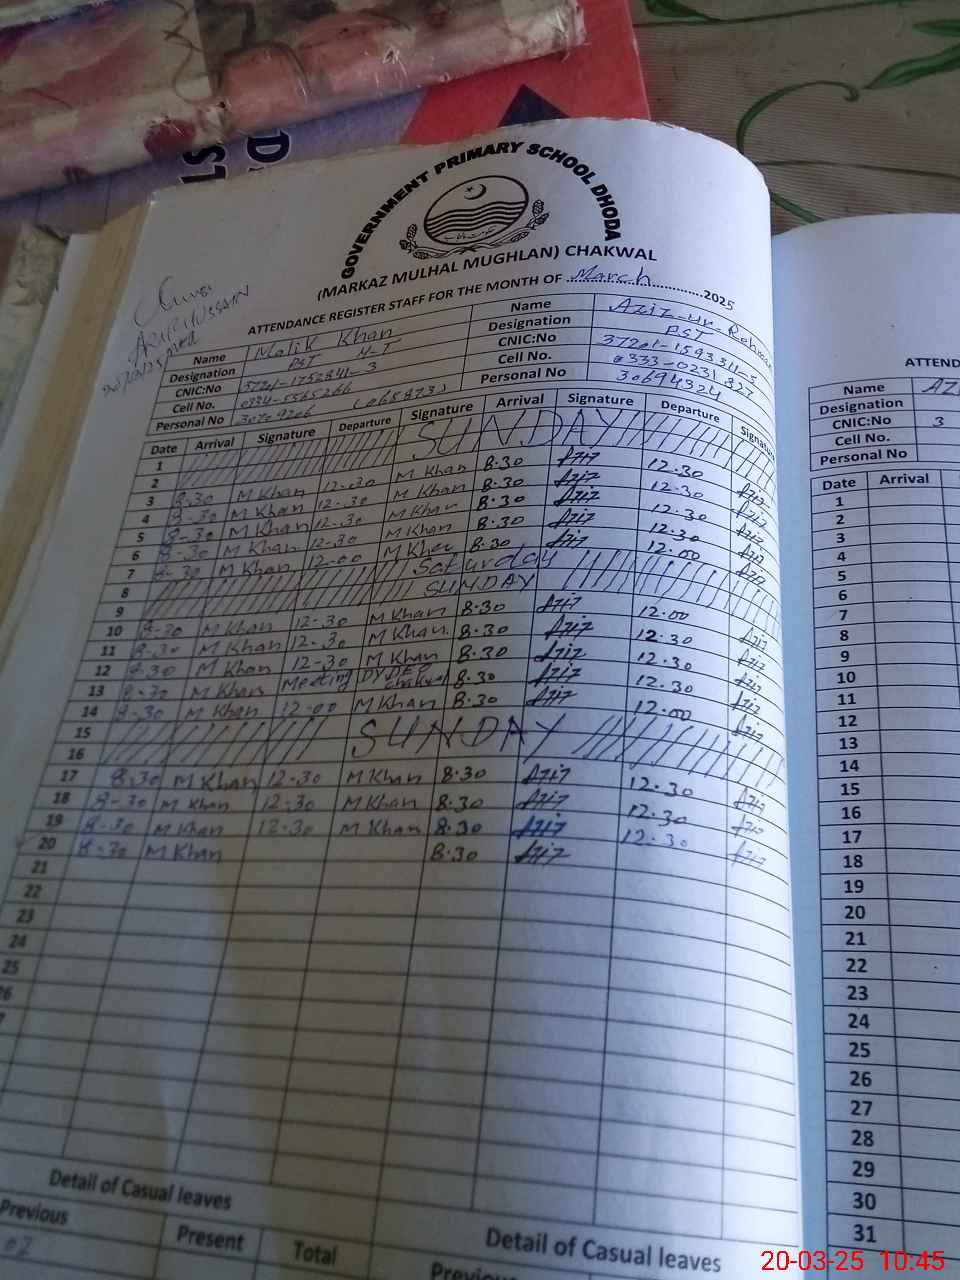 GOVERNMENT PRIMARY SCHOOL DHODA
(MARKAZ MULHAL MUGHLAN) CHAKWAL
ATTENDANCE REGISTER STAFF FOR THE MONTH OF March 2025
Name Malik Khan Name Aziz-ur-Rehman
Designation PST H-T Designation PST
CNIC:No CNIC:No
Cell No. Cell No.
Personal No Personal No 30694324
Date Arrival Signature Departure Signature Arrival Signature Departure Signature
1
2 SUNDAY
3 8-30 M Khan 12-30 M Khan 8.30 Aziz 12.30 Aziz
4 8-30 M Khan 12-30 M Khan 8.30 Aziz 12.30 Aziz
5 8-30 M Khan 12-30 M Khan 8.30 Aziz 12.30 Aziz
6 8-30 M Khan 12-30 M Khan 8.30 Aziz 12.30 Aziz
7 8-30 M Khan 12-00 M Khan 8.30 Aziz 12.00 Aziz
8 Saturday
9 SUNDAY
10 8-30 M Khan 12-30 M Khan 8.30 Aziz 12.00 Aziz
11 8-30 M Khan 12-30 M Khan 8.30 Aziz 12.30 Aziz
12 8-30 M Khan 12-30 M Khan 8.30 Aziz 12.30 Aziz
13 8-30 M Khan Meeting DY DEO Chakwal 8.30 Aziz 12.30 Aziz
14 8-30 M Khan 12-00 M Khan 8.30 Aziz 12.00 Aziz
15
16 SUNDAY
17 8.30 M Khan 12-30 M Khan 8.30 Aziz 12.30 Aziz
18 8-30 M Khan 12-30 M Khan 8.30 Aziz 12.30 Aziz
19 8-30 M Khan 12.30 M Khan 8.30 Aziz 12.30 Aziz
20 8-30 M Khan 8.30 Aziz
21
22
23
24
25
Detail of Casual leaves Detail of Casual leaves
Previous Present Total Previous
02
ATTEND
Name AZI
Designation
CNIC:No 3
Cell No.
Personal No
Date Arrival
1
2
3
4
5
6
7
8
9
10
11
12
13
14
15
16
17
18
19
20
21
22
23
24
25
26
27
28
29
30
31
20-03-25 10:45